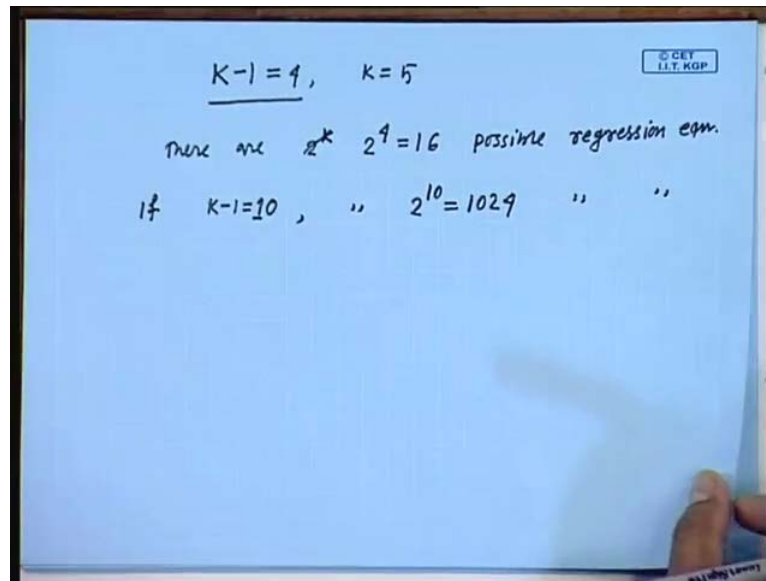 K-1=4, K=5
© CET
I.I.T. KGP
There are 2^k 2^4=16 possible regression eqn.
If K-1=10, ,, 2^10=1024 ,, ,,